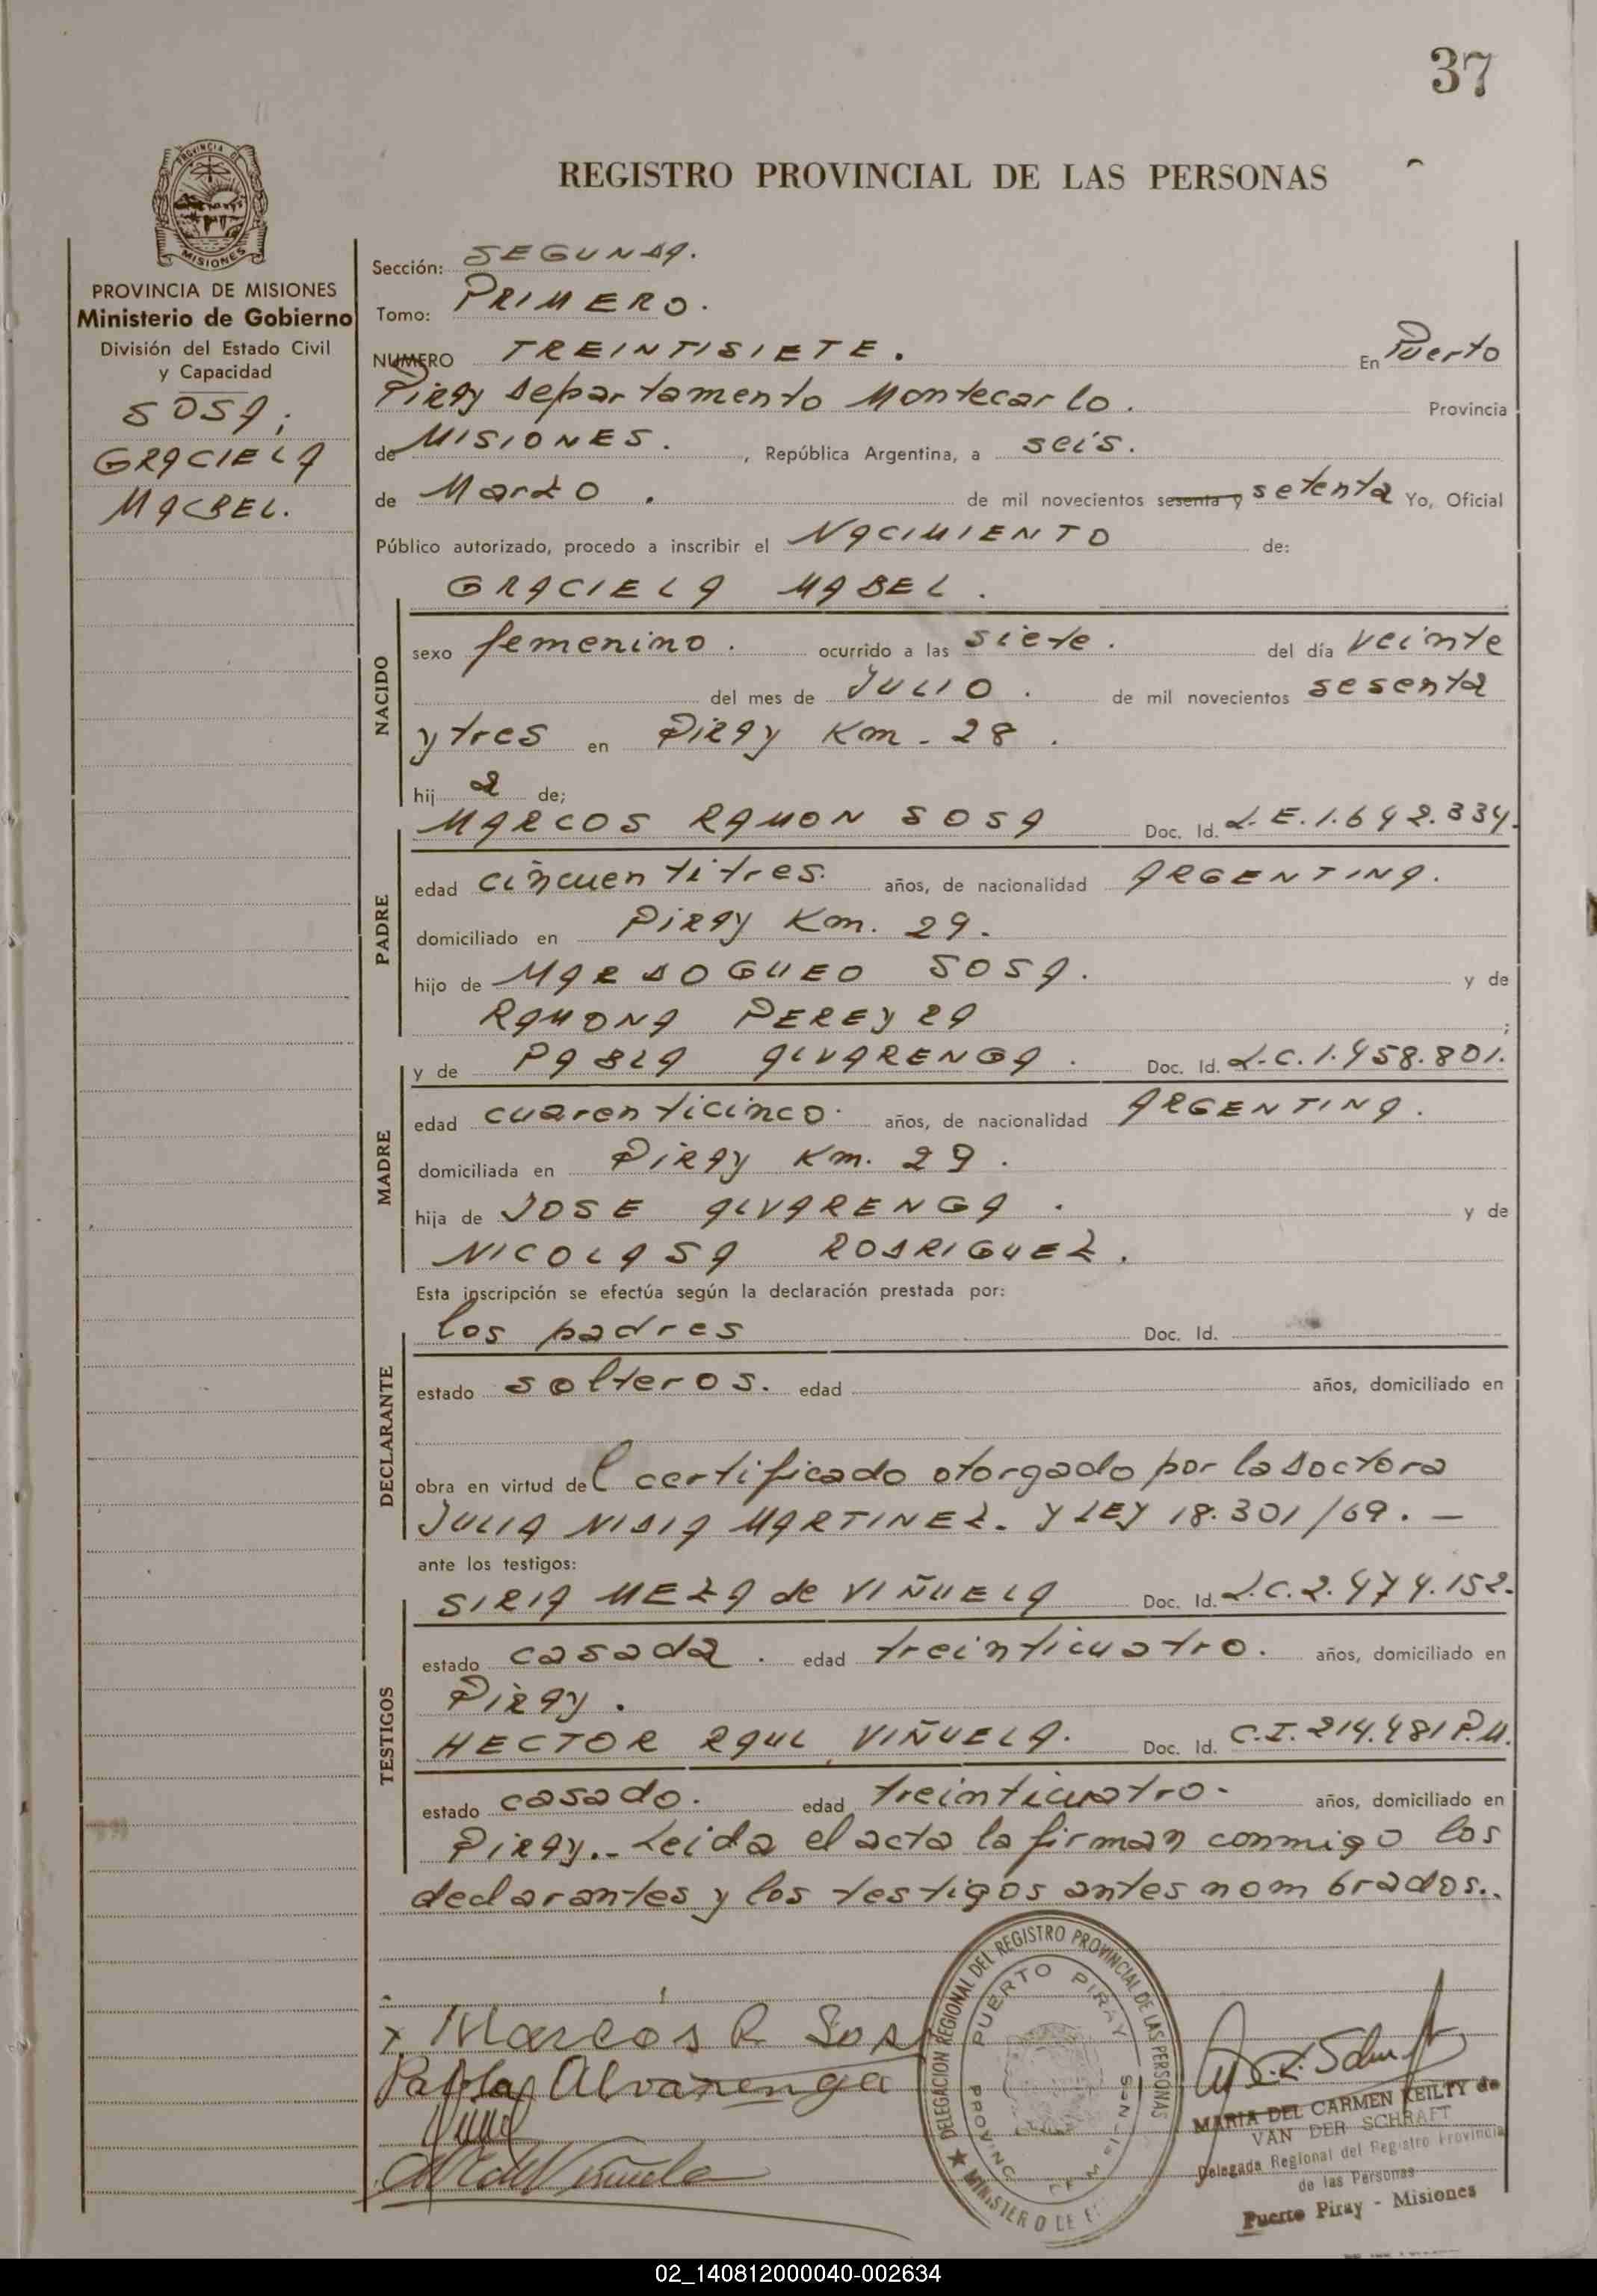 37
REGISTRO PROVINCIAL DE LAS PERSONAS
PROVINCIA DE
MISIONES
PROVINCIA DE MISIONES
Ministerio de Gobierno
División del Estado Civil
y Capacidad
SOSA;
GRACIELA
MABEL.
Sección: SEGUNDA.
Tomo: PRIMERO.
NUMERO TREINTISIETE. En Puerto
Piray departamento Montecarlo. Provincia
de MISIONES. , República Argentina, a seis.
de Marzo . de mil novecientos sesenta y setenta Yo, Oficial
Público autorizado, procedo a inscribir el NACIMIENTO de:
GRACIELA MABEL.
NACIDO
sexo femenino. ocurrido a las siete. del día veinte
del mes de JULIO. de mil novecientos sesenta
y tres en PIRAY Km. 28.
hij a de;
MARCOS RAMON SOSA Doc. Id. L.E.1.642.334.
PADRE
edad cincuentitres. años, de nacionalidad ARGENTINA.
domiciliado en PIRAY Km. 29.
hijo de MARDOQUEO SOSA. y de
RAMONA PEREYRA ;
y de PABLA ALVARENGA. Doc. Id. L.C.1.458.801.
MADRE
edad cuarenticinco. años, de nacionalidad ARGENTINA.
domiciliada en PIRAY Km. 29.
hija de JOSE ALVARENGA. y de
NICOLASA RODRIGUEZ.
Esta inscripción se efectúa según la declaración prestada por:
los padres Doc. Id.
DECLARANTE
estado solteros. edad años, domiciliado en
obra en virtud del certificado otorgado por la doctora
JULIA NIDIA MARTINEZ. Y LEY 18.301/69. —
ante los testigos:
SIRIA MEZA de VIÑUELA Doc. Id. L.C.2.474.152.
TESTIGOS
estado casada. edad treinticuatro. años, domiciliado en
PIRAY.
HECTOR RAUL VIÑUELA. Doc. Id. C.I. 214.481 P.M.
estado casado. edad treinticuatro. años, domiciliado en
PIRAY.- Leida el acta la firman conmigo los
declarantes y los testigos antes nombrados..
x Marcos R Sosa
Pabla Alvarenga
de Viñuela
DELEGACION REGIONAL DEL REGISTRO PROVINCIAL DE LAS PERSONAS
PUERTO PIRAY
MINISTERIO DE
MARIA DEL CARMEN KEILTY de
VAN DER SCHRAFT
Delegada Regional del Registro Provincia
de las Personas
Puerto Piray - Misiones
02_140812000040-002634